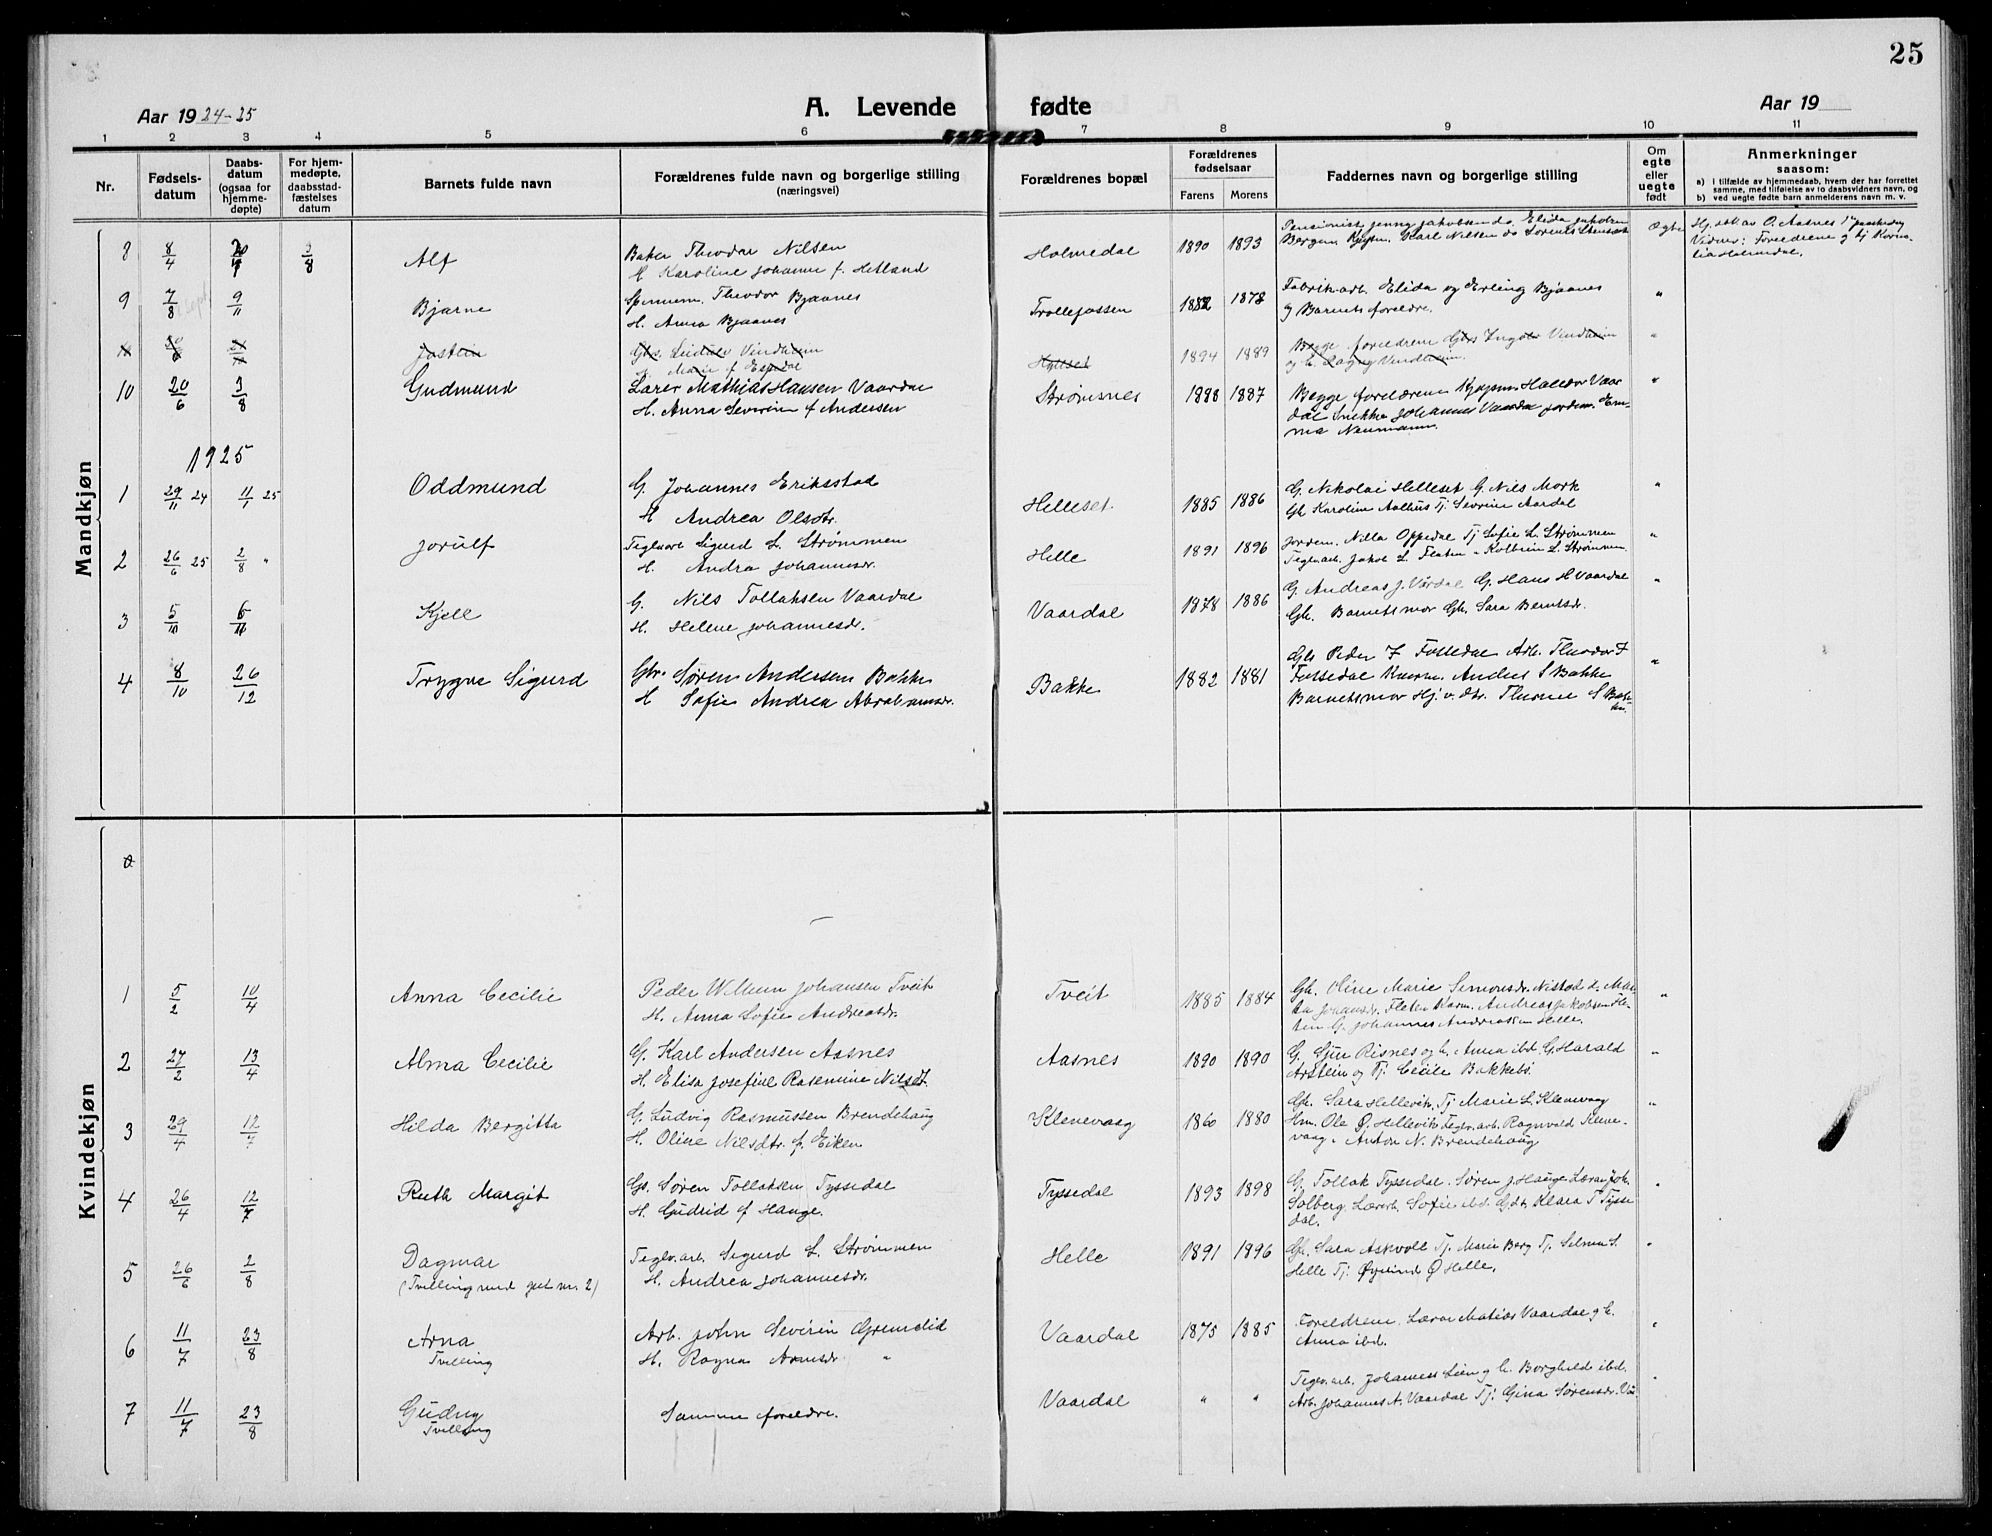 25
Aar 1924-25
A. Levende fødte
Aar 19
1 2 3 4 5 6 7 8 9 10 11
Nr.
Fødsels-
datum
Daabs-
datum
(ogsaa for
hjemme-
døpte)
For hjem-
medøpte,
daabsstad-
fæstelses
datum
Barnets fulde navn
Forældrenes fulde navn og borgerlige stilling
(næringsvei)
Forældrenes bopæl
Forældrenes
fødselsaar
Farens Morens
Faddernes navn og borgerlige stilling
Om
egte
eller
uegte
født
Anmerkninger
saasom:
a) i tilfælde av hjemmedaab, hvem der har forrettet
samme, med tilføielse av to daabsvidners navn, og
b) ved uegte fødte barn anmelderens navn m. v.
Mandkjøn
8 8/4 Alf
Baker Theodor Nilsen
H. Karoline Johanne f. Hetland
Holmedal 1890 1893
Pensionist Jenny Jakobsen do. Elida Jakobsen
Bergen Karl Nilsen do Lorentz
Ægte
Hj. døbt av O. Aasnes
Vidner: Foreldrene og Hj Korne-
lia Holmedal.
9 7/8 9/11 Bjarne
Theodor Bjaanes
H. Anna Bjaanes
Trollefossen 1882 1878
Fabrikarb. Elida og Erling Bjaanes
og Barnets foreldre. "
Jostein
Gbr. Leidulv Vindheim
H. Marie f. Espedal
1894 1889
Begge foreldrene Gbr Ingolv Vindheim
og Vindheim. "
10 20/6 3/8 Gudmund
Lærer Mathias Hansen Vaardal
H. Anna Severine f Andersen
Strømsnes 1888 1887
Begge foreldrene Halldor Vaar
dal Snekker Johannes Vaardal Jordm. Em-
ma Neumann. "
1925
1 29/11 24 11/1 25 Oddmund
G. Johannes Eriksstad
H Andrea Olsdtr.
Helleset. 1885 1886
G. Nikolai Helleset G. Nils Mork
Gh Karoline Aalhus Tj. Severine Aardal "
2 26/6 25 2/8 " Jorulf
Teglverk Sigurd L. Strømmen
H. Andrea Johannesdr.
Helle 1891 1896
Jordem. Nilla Oppedal Tj Sofie L. Strømmen
Teglv.arb. Jakob L. Fleten " Kolbein L. Strømmen "
3 5/10 Kjell
G. Nils Tollaksen Vaardal
H. Helene Johannesdr.
Vaardal 1878 1886
G. Andreas J. Vårdal G. Hans H Vaardal
Gh. Barnets mor Gh. Sara Berntsdr. "
4 8/10 26/12 Trygve Sigurd
Gbr. Søren Andersen Bakke
H Sofie Andrea Abrahamsdr.
Bakke 1882 1881
Gbr Peder F Fossedal Arb. Theodor F
Fossedal Anders S Bakke
Barnets mor Hj. v. dtr. Thorine S Bak-
ke. "
Kvindekjøn
0
1 5/2 10/4 Anna Cecilie
Peder Wilhelm Johansen Tveit
H. Anna Sofie Andreasdr.
Tveit 1885 1884
Gh. Oline Marie Simonsdr. Nistad
Johansdr. Fleten Andreas Jakobsen Fle-
ten G. Johannes Andreassen Helle. "
2 27/2 13/4 Alma Cecilie
G. Karl Andersen Aasnes
H. Elisa Josefine Rasemine Nilsdt.
Aasnes 1890 1890
G. Sjur Risnes og h. Anna ibd. G. Harald
Arstein og Tj. Cecilie Bakkebø. "
3 29/4 12/7 Hilda Bergitta
G. Ludvig Rasmussen Brendehaug
H. Oline Nilsdtr. f. Eiken
Klenevaag 1860 1880
Gh. Sara Hellevik, Tj Marie L. Klenevaag
Hm. Ole O. Hellevik Teglv. arb. Ragnvald Klene-
vaag. " Anton N. Brendehaug "
4 26/4 12/7 Ruth Margit
Gs. Søren Tollaksen Tyssedal
H. Gudrid f Hauge.
Tyssedal 1893 1898
G. Tollak Tyssedal. Søren J. Hauge Lærer Joh.
Solberg. Lærerh. Sofie ibd. Gdt. Klara T Tysse
dal. "
5 26/6 2/8 Dagmar
(Tvilling med gut nr. 2)
Teglv.arb. Sigurd L. Strømmen
H. Andrea Johannesdr.
Helle 1891 1896
Gh. Sara Askvoll Tj. Marie Berg Tj. Selma S.
Helle Tj. Øyvind Ø Helle. "
6 11/7 23/8 Arna
Tvilling
Arb. John Severin Grimelid
H. Ragna Arnesdr. "
Vaardal 1875 1885
Foreldrene, Lærer Matias Vaardal og h.
Anna ibd. "
7 11/7 23/8 Gudny
Tvilling
Samme foreldre.
Vaardal " "
Teglv.arb. Johannes Lien og h. Borghild ibd.
Arb. Johannes A. Vaardal Tj. Gina Sørensdr. "